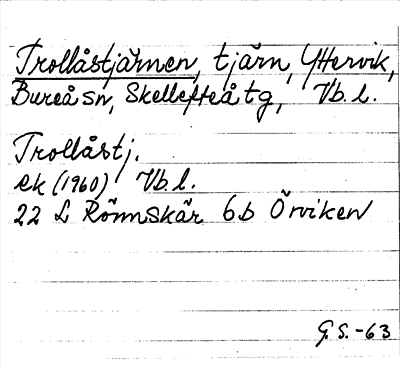 Trollåstjärnen, tjärn, Yttervik,
Bureå sn, Skellefteå tg, Vb. l.
Trollåstj.
ek (1960) Vb. l.
22 L Rönnskär 6b Örviken
G. S. -63